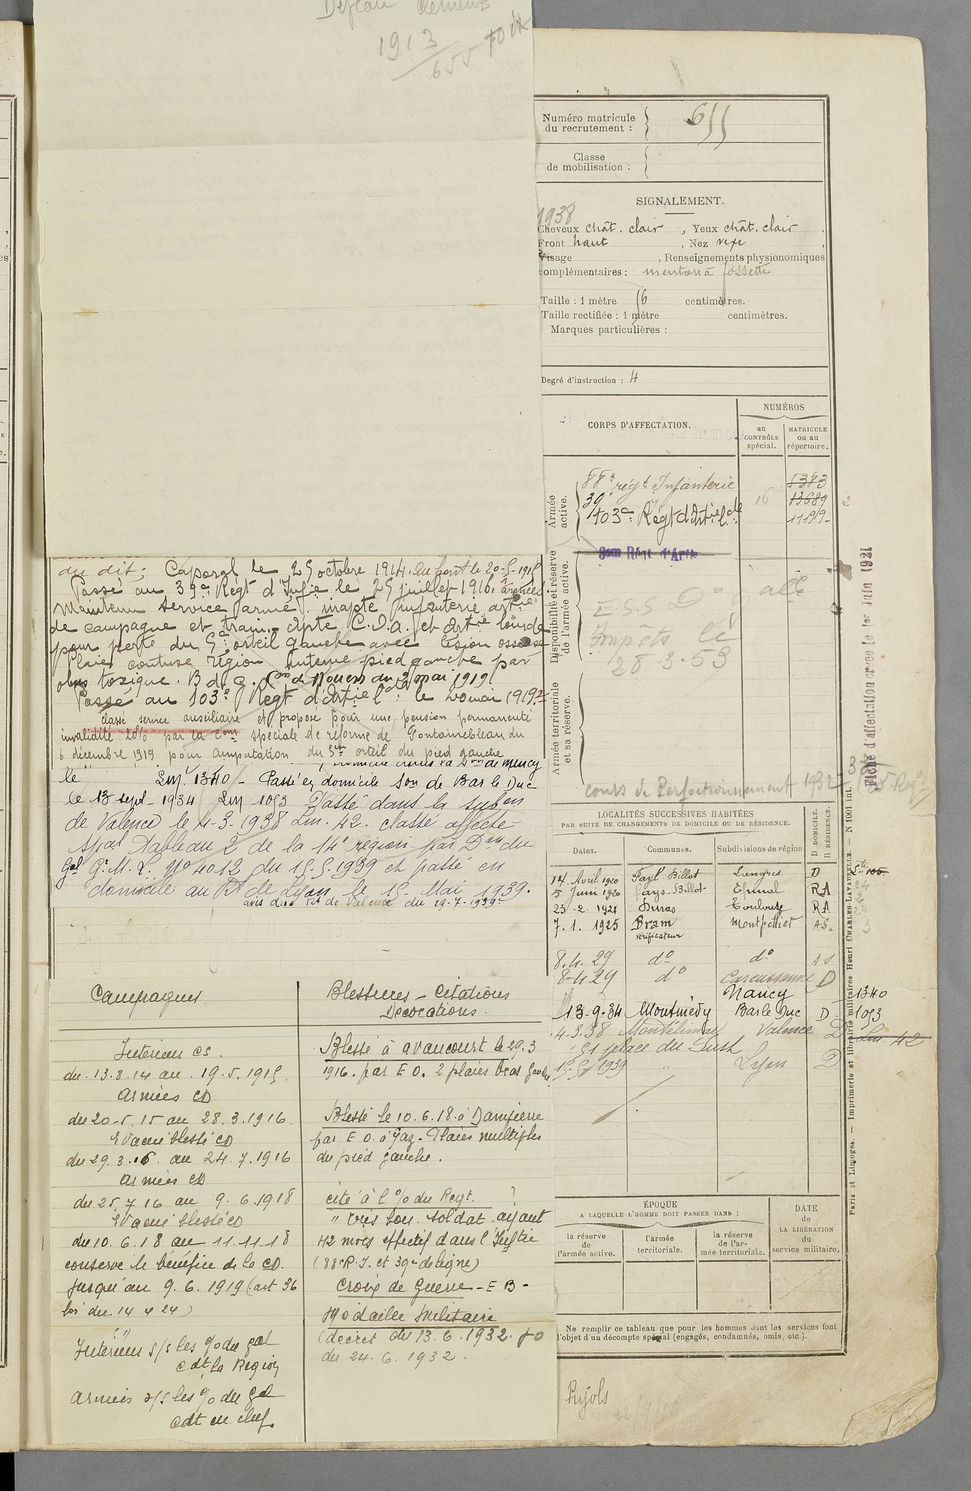 1913
655
Numéro matricule
du recrutement :
655
Classe
de mobilisation :
SIGNALEMENT.
1938
Cheveux chât. clair , Yeux chât. clair ,
Front haut , Nez vexe ,
Visage , Renseignements physionomiques
complémentaires : menton à fossette
Taille : 1 mètre 76 centimètres.
Taille rectifiée : 1 mètre centimètres.
Marques particulières :
Degré d'instruction : 4
CORPS D'AFFECTATION.
NUMÉROS
au
CONTRÔLE
spécial.
MATRICULE
ou au
répertoire.
Armée
active.
88e régt Infanterie 5383
39e 16 13689
103e Régt d'Artie lde
Disponibilité et réserve
de l'armée active.
Impôts le
28.3.53
Armée territoriale
et sa réserve.
cours de Perfectionnement 1932
du dit; Caporal le 25 octobre 1914. Au front le 20-5-1915
Passé au 39e Régt d'Infie le 25 juillet 1916.
Maintenu service armé. inapte infanterie artie
de campagne et train. Apte C.O.A. et Artie lourde
pour perte du 5e orteil gauche avec lésion osseuse
Plaie contuse région interne pied gauche par
obus toxique. Con de Rouen du 2 mai 1919.
Passé au 103e Régt d'Artie lde le 20 mai 1919.
classé service auxiliaire et proposé pour une pension permanente
invalidité 20% par la Com spéciale de réforme de Fontainebleau du
6 décembre 1919 pour amputation du 5me orteil du pied gauche
Son de Nancy
le Lm. 1340 - Passé en domicile Son de Bar le Duc
le 13 sept. 1934 Lm 1093 Passé dans la subon
de Valence le 4-3-1938 Lm. 42. classé affecté
spal Tableau 2 de la 14e région par Don du
Gal G.M.L. No 4012 du 15.5.1939 et passé en
domicile au Bau de Lyon le 15 Mai 1939.
avis du de Valence du 29-7-1939
Campagnes
Intérieur CS.
du 13.8.14 au 19.5.1915.
Armées CD
du 20-5.15 au 28.3.1916
Evacué blessé CD
du 29.3.16 au 24.7.1916
Armées CD
du 25.7.16 au 9.6.1918
Evacué blessé CD
du 10.6.18 au 11.11.18
conserve le bénéfice de la CD.
jusqu'au 9.6.1919 (art 36
loi du 14 4 24)
Intérieur s/s les % du gal
cdt la Région
Armées s/s les % du gal
cdt en chef
Blessures - Citations
Décorations.
Blessé à Avaucourt le 29.3
1916. par E O. 2 plaies bras gauche
Blessé le 10.6.18 à Dampierre
par E O. à Gaz. Plaies multiples
du pied gauche.
cité à l'% du Regt.
"très bon soldat ayant
42 mois effectif dans l'Inftie
(88e R.I. et 39e de ligne)
Croix de Guerre - E B -
Médaille Militaire
(décret du 13.6.1932. JO
du 24.6.1932.
LOCALITÉS SUCCESSIVES HABITÉES
PAR SUITE DE CHANGEMENTS DE DOMICILE OU DE RÉSIDENCE.
Dates. Communes. Subdivisions de région
D DOMICILE.
R RÉSIDENCE.
14 Avril 1920 Fayl-Billot Langres D
5 Juin 1920 Fays-Billot Epinal RA
23-2.1921 Toulouse RA
7.1.1925 Bram Montpellier AS.
vérificateur
8.4.29 do do A S
8-4.29 do Carcassonne D
Nancy 1340
13-9-34 Montmédy Bar le Duc D 1093
4.3.38 Montélimar Valence D Lm. 42
15-5-1939 " Lyon D
ÉPOQUE
A LAQUELLE L'HOMME DOIT PASSER DANS :
la réserve
de
l'armée active.
l'armée
territoriale.
la réserve
de l'ar-
mée territoriale.
DATE
de
LA LIBÉRATION
du
service militaire.
Ne remplir ce tableau que pour les hommes dont les services font
l'objet d'un décompte spécial (engagés, condamnés, omis, etc.).
Pujols
Fiche d'affectation créée le 1er Juin 1931
Paris et Limoges. — Imprimerie et librairie militaires Henri CHARLES-LAVAUZELLE. — N 1001 int.